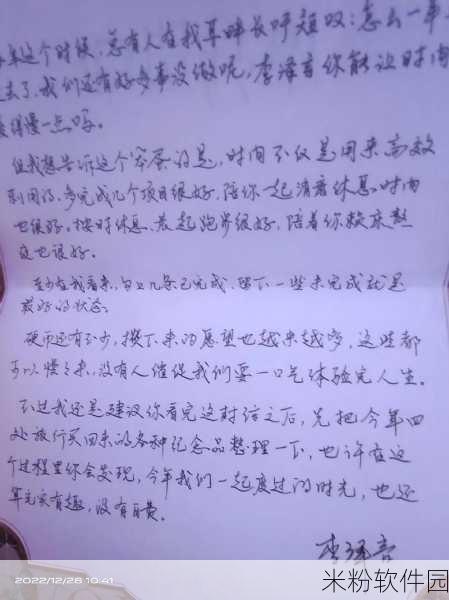 年这个时候,总有人在我耳畔长吁短叹:怎么一年
去了,我们还有好多事没做呢,李泽言你能让时间
得慢一点吗。
但我想告诉这个笨蛋的是,时间不仅是用来高效
利用的,多完成几个项目很好,陪你一起消磨休息时间
也很好。按时休息、晨起跑步很好,陪着你赖床熬
夜也很好。
至少在我看来,每几条已完成,留下一些未完成就是
最好的状态。
硬币还有不少,攒下来的愿望也越来越多,这些都
可以慢慢来,没有人催促我们要一口气体验完人生。
不过我还是建议你看完这封信之后,先把今年四
处旅行买回来的各种纪念品整理一下,也许在这
个过程里你会发现,今年我们一起度过的时光,也还
算充实有趣,没有白费。
李泽言
2022/12/28 10:41
米粉软件园